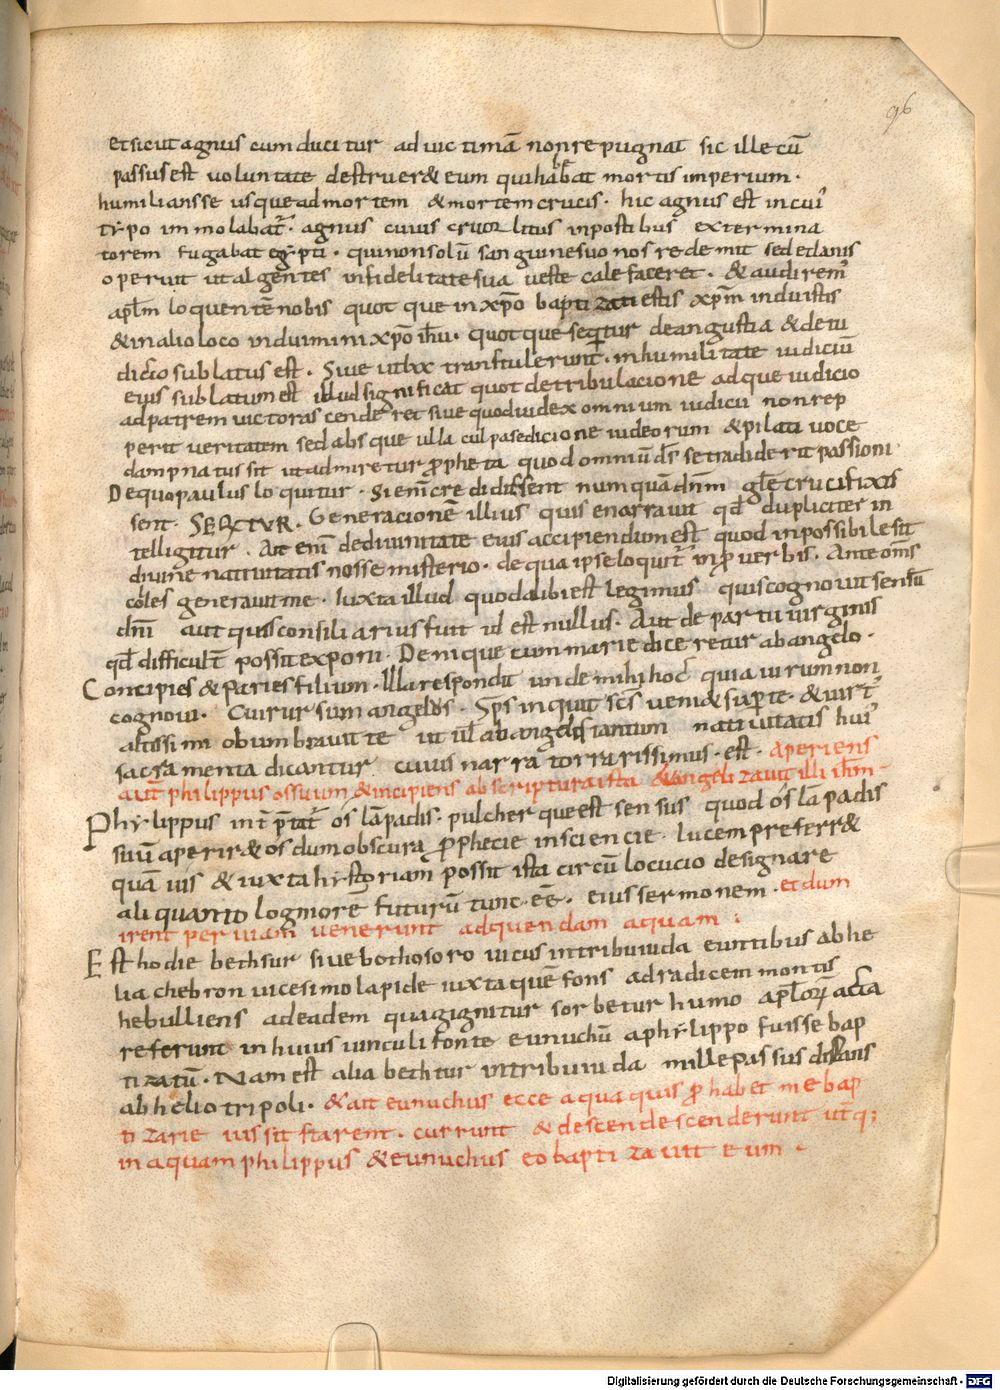 96
et sicut agnus cum ducitur ad uictimā non repugnat sic ille cū
passus est uoluntate destruer& eum qui habebat mortis imperium·
humilians se usque ad mortem & mortem crucis· hic agnus est in cui'
typo immolabat̄· agnus cuius cruor litus in postibus extermina
torem fugabat egypti· qui non solū sanguine suo nos redemit sed e lanis
operuit ut algentes infidelitate sua ueste calefaceret· & audirem'
apl̄m loquentē nobis quot que in xp̄o baptizati estis xp̄m induistis
& in alio loco induimini xp̄o ih̄u· quot que sequitur de angustia & de iu
dicio sublatus est· Siue ut lxx transtulerunt· in humilitate iudiciū
eius sublatum est illud significat quot de tribulacione adque iudicio
ad patrem uictor ascenderet siue quod iudex omnium iudicii non rep
perit ueritatem sed absque ulla culpa sedicione iudeorum & pilati uoce
dampnatus sit ut admiretur ꝓpheta quod omniū d̄s se tradiderit passioni
De quo paulus loquitur· Si enī credidissent numquā dn̄m glē crucifixis
sent· SEQITUR· Generacionē illius quis enarrauit qd̄ dupliciter in
telligitur· Aut enī de diuinitate eius accipiendum est quod inpossibile sit
diuine natiuitatis nosse misterio· de qua ipse loquit̄ in ꝓuerbis· Ante om̄s
colles generauit me· Iuxta illud quod alibi est legimus quis cognouit sensū
dn̄i aut quis consiliarius fuit id est nullus· Aut de partu uirginis
qd̄ difficult̄ possit exponi· Denique cum marie diceretur ab angelo·
Concipies & paries filium· Illa respondit unde mihi hoc quia uirum non
cognoui· Cui rursum angelus· Sp̄s inquit sc̄s ueni& sup te· & uirt'
altissimi obumbrauit te ut uel ab angelo tantum natiuitatis hui'
sacramenta dicantur cuius narrator rarissimus· est· aperiens
aut̄ philippus os suum & incipiens ab scriptura ista euangelizauit illi ih̄m-
Phylippus int̄ptat̄ os lāpadis· pulcher que est sensus quod os lāpadis
suū aperir& os dum obscura ꝓphecie in sciencie· lucem preferr&
quā uis & iuxta hystoriam possit ista circū locucio designare
aliquanto logmorē futurū tunc· ēe· eius sermonem· et dum
irent per uiam uenerunt ad quendam aquam :
Est hodie bethsur siue bethosoro uicus in tribu iuda euntibus ab he
lia chebron uicesimo lapide iuxta quē fons ad radicem montis
hebulliens ad eadem qua gignitur sorbetur humo apl̄oꝝ acta
referunt in huius uiunculi fonte eunuchū a phylippo fuisse bap
tizatū· Nam est alia bethtur in tribu iuda mille passus distans
ab heliotripoli· & ait eunuchus ecce aqua quis ꝓhabet me bap
tizarie iussit starent· currunt & descendescenderunt utq;
in aquam philippus & eunuchus eo baptizauit eum·
Digitalisierung gefördert durch die Deutsche Forschungsgemeinschaft - DFG